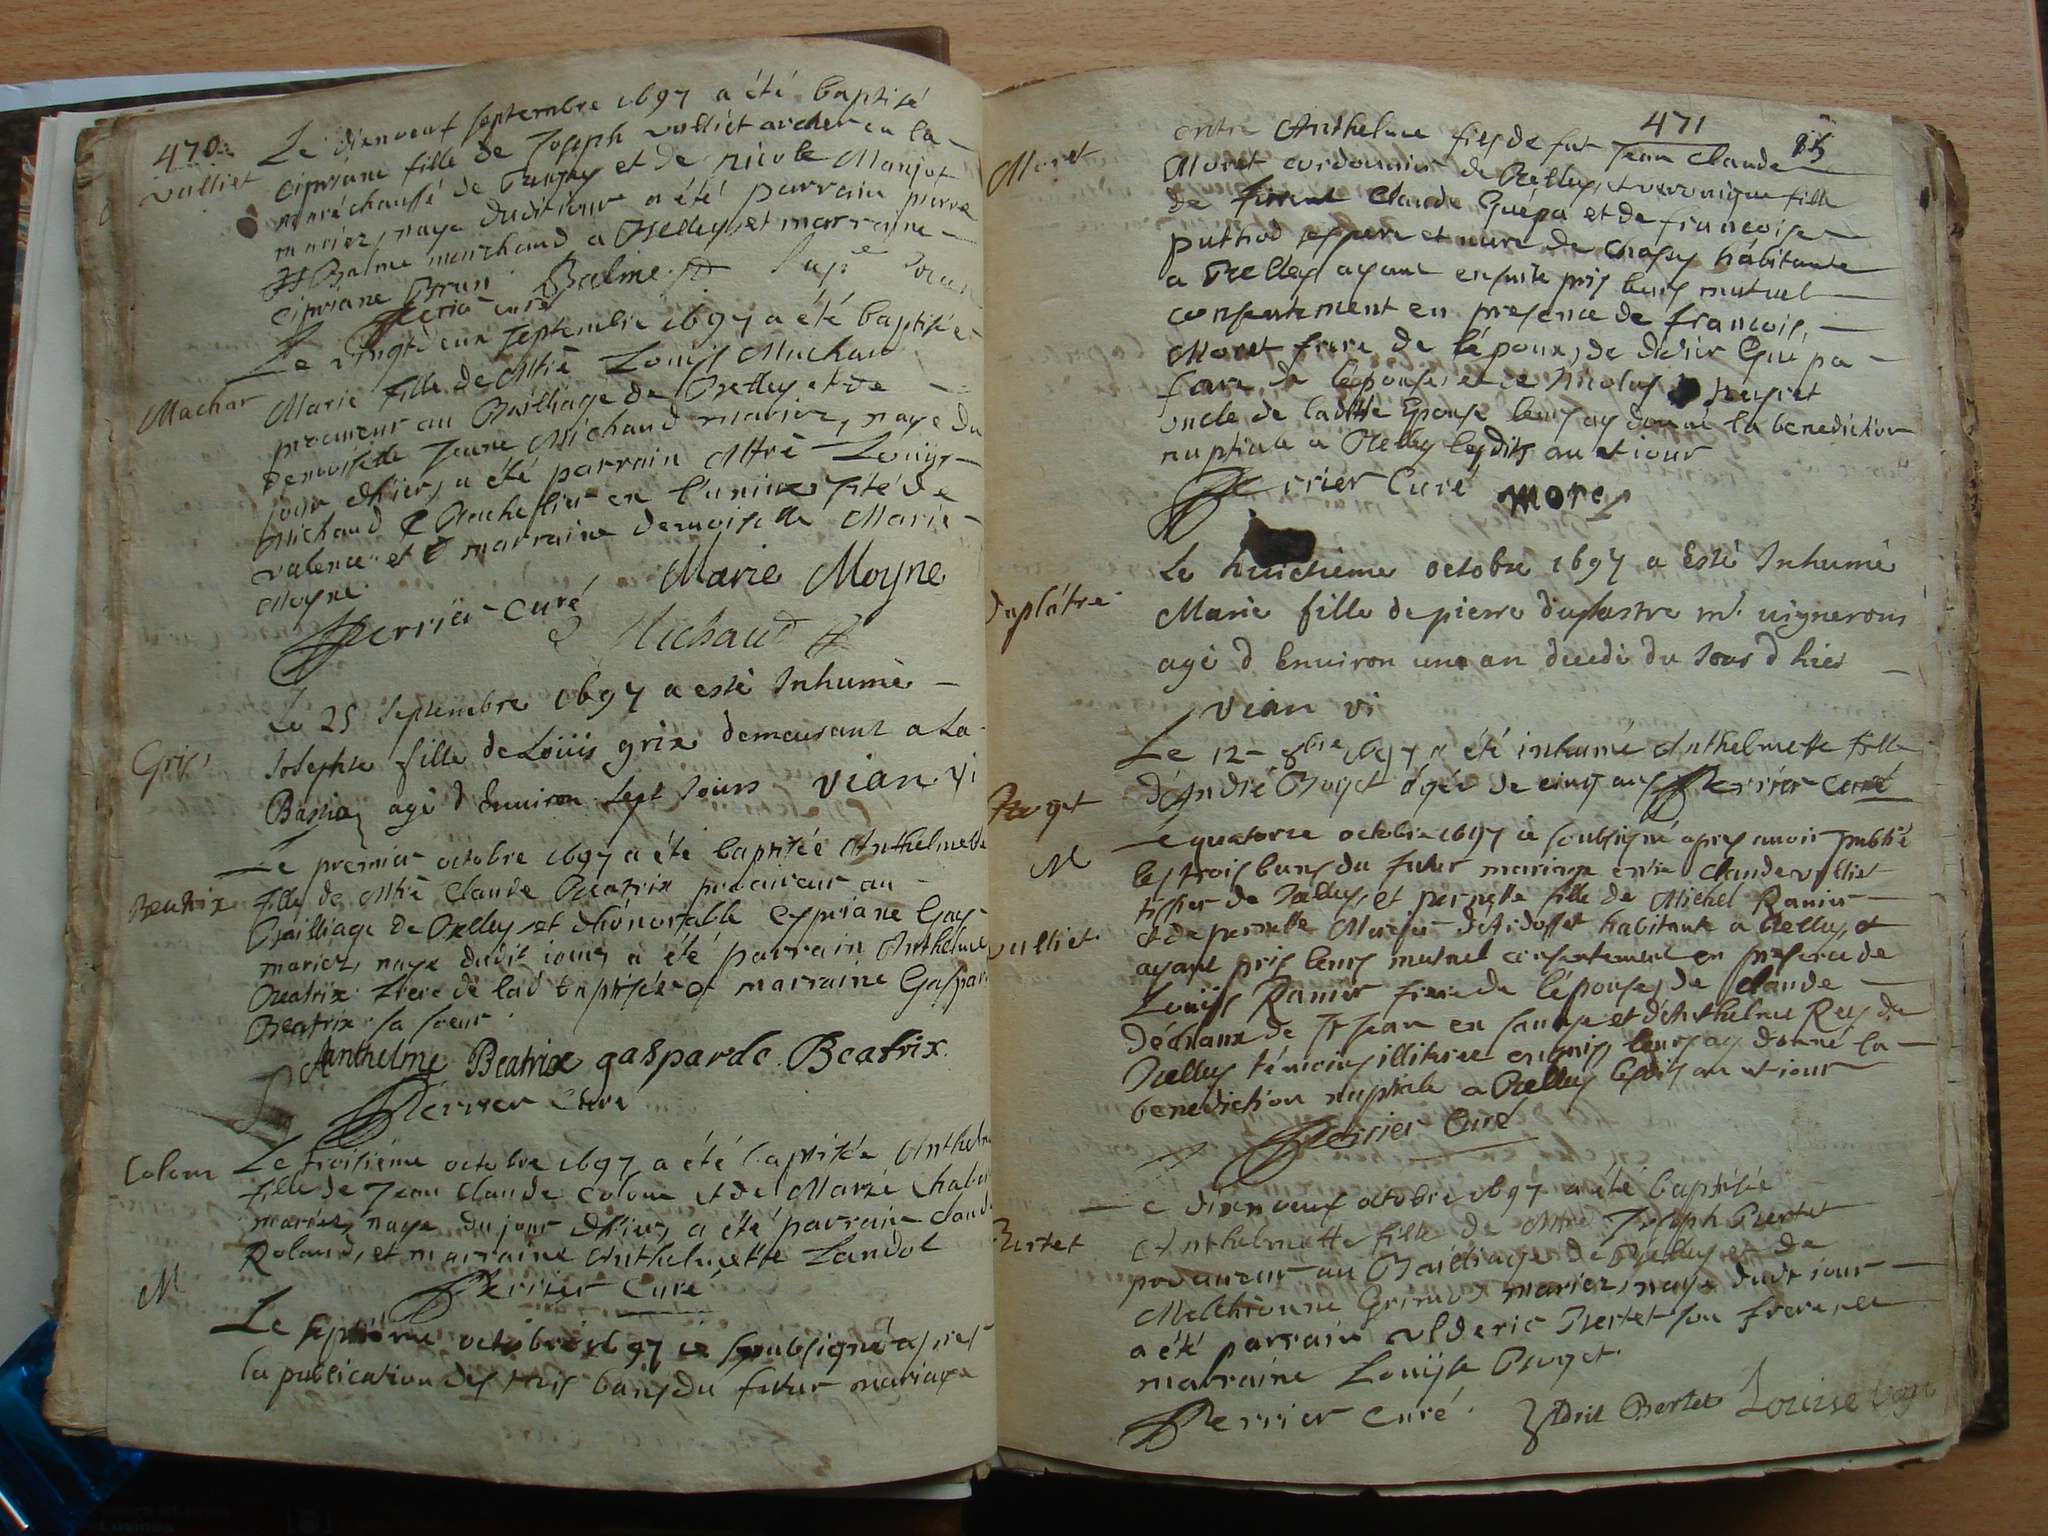 470
Le dixneuf septembre 1697 a été baptisé
vulliet
cipriane fille de Joseph vulliet archer en la
maréchaussé de et de nicole Monjot
mariez, naye dudit jour a été parrain pierre
Balme marchand a Belley et marraine
cipriane Brun Balme
Perrier curé
Le septembre 1697 a été baptisée
Machar
Marie fille de Mtre Louys Michaud
procureur au Bailliage de Belley et de
Demoiselle Jeane Michaud mariez, naye du
jour d'hier, a été parrain Mtre Louys
Michaud Bachelier en l'université de
valence et marraine demoiselle Marie
Moyne
Marie Moyne
Perrier curé
Michaud
Le 25 septembre 1697 a esté Inhumé
Gris
Josephte fille de Loüis grix demeurant a La
Bastia agé d Environ sept Jours vian vi
Le premier octobre 1697 a été baptisée Anthelmette
Beatrix
fille de Mtre Claude Beatrix procureur au
Bailliage de Belley et d'honorable Cypriane Gay
mariez, naye dudit iour, a été parrain Anthelme
Beatrix frere de lad baptisée et marraine Gaspar
Beatrix sa soeur
Anthelme Beatrix gasparde Beatrix
Perrier Curé
Colom
Le troisième octobre 1697 a été baptisée Anthelm
fille de Jean Claude Colom et de Marie
mariez, naye du jour d'hier, a été parrain claude
Roland, et marraine Anthelmette Landol
Perrier Curé
M
Le septième octobre 1697 ie soubsigné apres
la publication des trois bans du futur mariage
471
85
entre Anthelme fils de fut Jean Claude
Moret
Moret cordonnier de Belley, et veronique fille
de Claude Guépa et de francoise
puthod ses pere et mere de habitante
a Belley ayant ensuite pris leurs mutuel
consentement en presence de francois
Moret frere de l'époux, de didier Guépa
frere de l'epouse et de Nicolas
oncle de ladite Epouse leurs ay donné la benediction
nuptiale a Belley lesdits an et iour
Perrier Curé moret
Le huictième octobre 1697 a Esté Inhumé
duplâtre
Marie fille de pierre duplastre mt vignerons
agé d Environ une an decedé du Jour d hier
vian vi
Le 12 8bre 1697 a été inhumé Anthelmette fille
Buget
d'André Boget agée de cinq ans Perrier Curé
M
Le quatorze octobre 1697 ie soubsigné apres avoir publié
les trois bans du futur mariage entre claude vulliet
tissier de Belley, et pernette fille de Michel Ramier
et de pernette habitante a Belley, et
vulliet
ayant pris leurs mutuel consentement en presence de
Louys Ramier frere de l'épouse, de Claude
de St Jean en et d'Anthelme Rey de
Belley témoins illiteré enquis leurs ay donné la
benediction nuptiale a Belley lesdits an et iour
Perrier Curé
Le dixneuf octobre 1697 a été baptisée
Bertet
Anthelmette fille de Mtre Joseph Bertet
procureur au Bailliage de Belley et de
Melchionne mariez, naye dudit iour
a été parrain Alderic Bertet son frere et
marraine Louyse Boget
Perrier Curé Bertet Louise